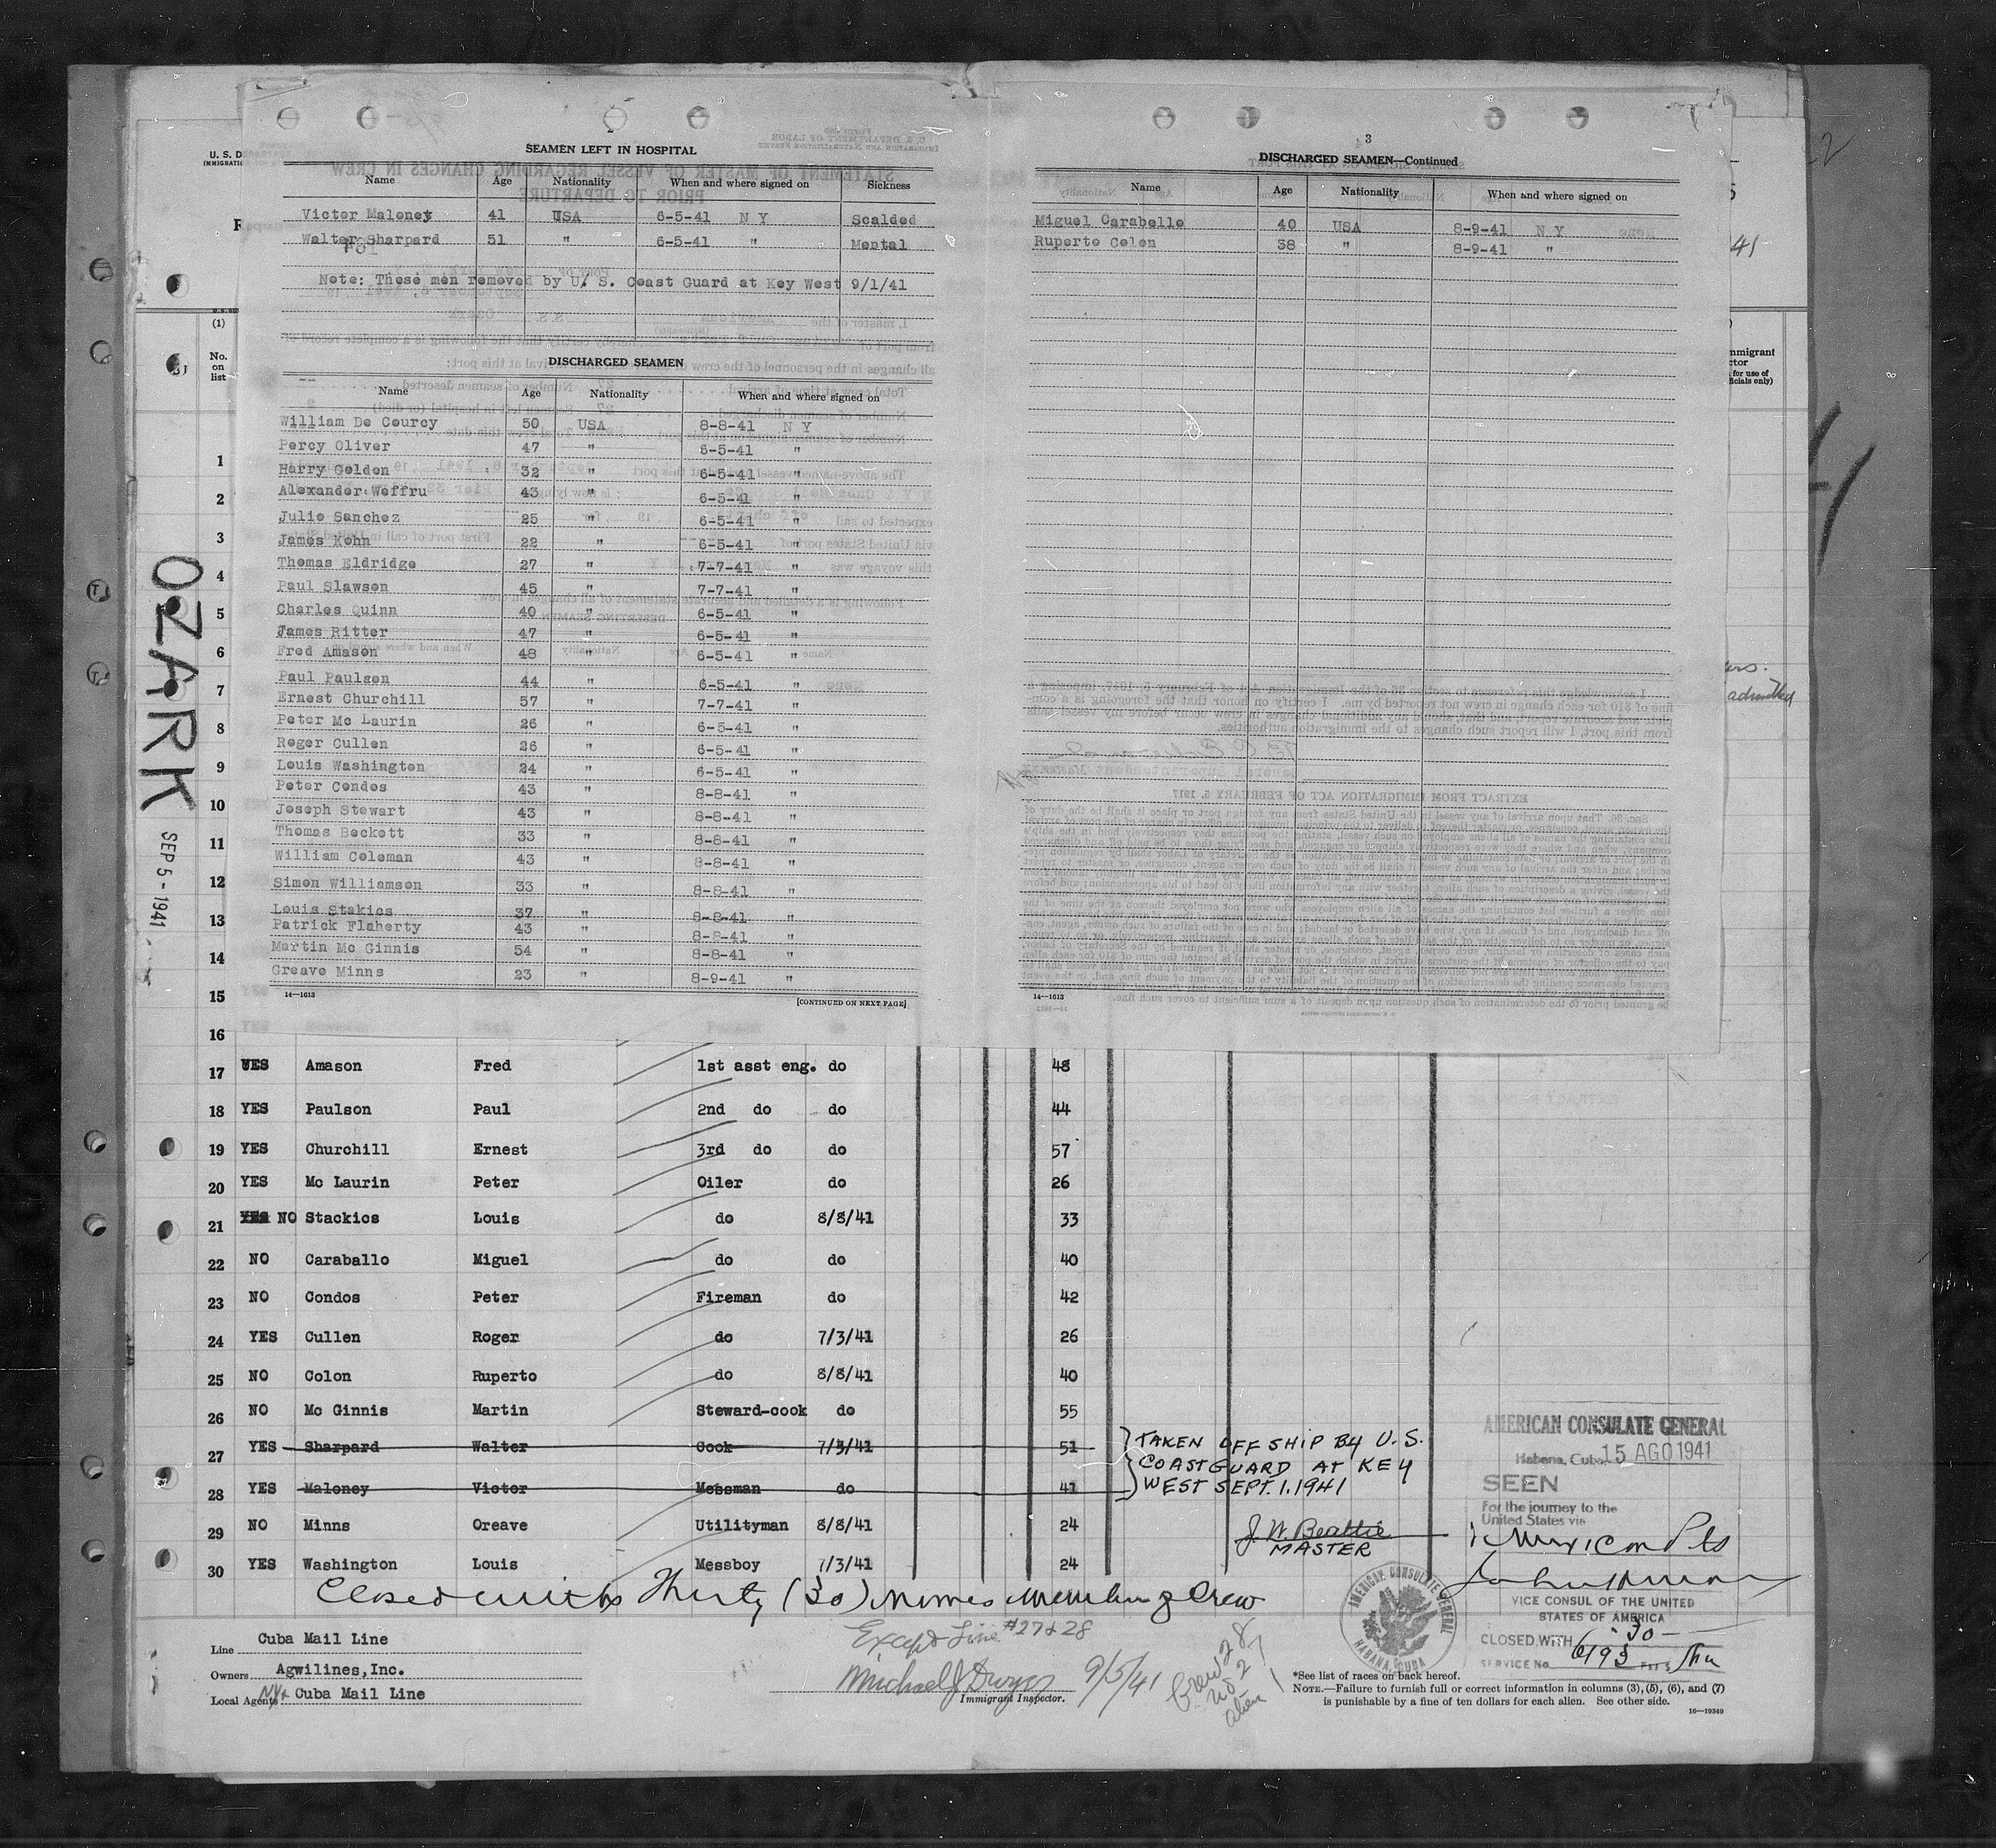 2
SEAMEN LEFT IN HOSPITAL
Name Age Nationality When and where signed on Sickness
Victor Maloney 41 USA 6-5-41 N Y Scalded
Walter Sharpard 51 " 6-5-41 " Mental
Note: These men removed by U. S. Coast Guard at Key West 9/1/41
DISCHARGED SEAMEN
Name Age Nationality When and where signed on
William De Courcy 50 USA 8-8-41 N Y
Percy Oliver 47 " 6-5-41 "
Harry Golden 32 " 6-5-41 "
Alexander Weffru 43 " 6-5-41 "
Julio Sanchez 25 " 6-5-41 "
James Kohn 22 " 6-5-41 "
Thomas Eldridge 27 " 7-7-41 "
Paul Slawson 45 " 7-7-41 "
Charles Quinn 40 " 6-5-41 "
James Ritter 47 " 6-5-41 "
Fred Amason 48 " 6-5-41 "
Paul Paulson 44 " 6-5-41 "
Ernest Churchill 57 " 7-7-41 "
Peter Mc Laurin 26 " 6-5-41 "
Roger Cullen 26 " 6-5-41 "
Louis Washington 24 " 6-5-41 "
Peter Condos 43 " 8-8-41 "
Joseph Stewart 43 " 8-8-41 "
Thomas Beckett 33 " 8-8-41 "
William Coleman 43 " 8-8-41 "
Simon Williamson 33 " 8-8-41 "
Louis Stakics 37 " 8-8-41 "
Patrick Flaherty 43 " 8-8-41 "
Martin Mc Ginnis 54 " 8-8-41 "
Greave Minns 23 " 8-9-41 "
14—1613 [CONTINUED ON NEXT PAGE]
3
DISCHARGED SEAMEN—Continued
Name Age Nationality When and where signed on
Miguel Carabello 40 USA 8-9-41 N Y
Ruperto Colon 38 " 8-9-41 "
14—1613
U. S. D
IMMIGRATI
R
(1)
No.
on
list
1
2
3
4
5
6
7
8
9
10
11
12
13
14
15
16
OZARK
SEP 5 - 1941
41
22
mmigrant
ctor
for use of
ficials only)
admitted
17 YES Amason Fred 1st asst eng. do 48
18 YES Paulson Paul 2nd do do 44
19 YES Churchill Ernest 3rd do do 57
20 YES Mc Laurin Peter Oiler do 26
21 YES NO Stackics Louis do 8/8/41 33
22 NO Caraballo Miguel do do 40
23 NO Condos Peter Fireman do 42
24 YES Cullen Roger do 7/3/41 26
25 NO Colon Ruperto do 8/8/41 40
26 NO Mc Ginnis Martin Steward-cook do 55
27 YES Sharpard Walter Cook 7/3/41 51
28 YES Maloney Victor Messman do 41
29 NO Minns Oreave Utilityman 8/8/41 24
30 YES Washington Louis Messboy 7/3/41 24
TAKEN OFF SHIP BY U.S.
COAST GUARD AT KEY
WEST SEPT. 1. 1941
J. W. Beattie
MASTER
Closed with Thirty (30) names members of Crew
Except Line #27 & 28
AMERICAN CONSULATE GENERAL
Habana, Cuba, 15 AGO 1941
SEEN
For the journey to the
United States via
Mexican Pts
VICE CONSUL OF THE UNITED
STATES OF AMERICA
CLOSED WITH 30
SERVICE No. 6193
AMERICAN CONSULATE GENERAL
HABANA, CUBA
Line Cuba Mail Line
Owners Agwilines, Inc.
Local Agents NY Cuba Mail Line
Michael J Dwyer 9/5/41
Immigrant Inspector.
Crew 28
no 27
alien 1
*See list of races on back hereof.
NOTE.—Failure to furnish full or correct information in columns (3), (5), (6), and (7)
is punishable by a fine of ten dollars for each alien. See other side.
16—19349